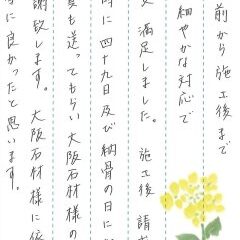 前から施工後まで
細やかな対応で
満足しました。施工後 請
時に四十九日及び納骨の日に
も送ってもらい大阪石材様の
謝致します。大阪石材様に依
に良かったと思います。